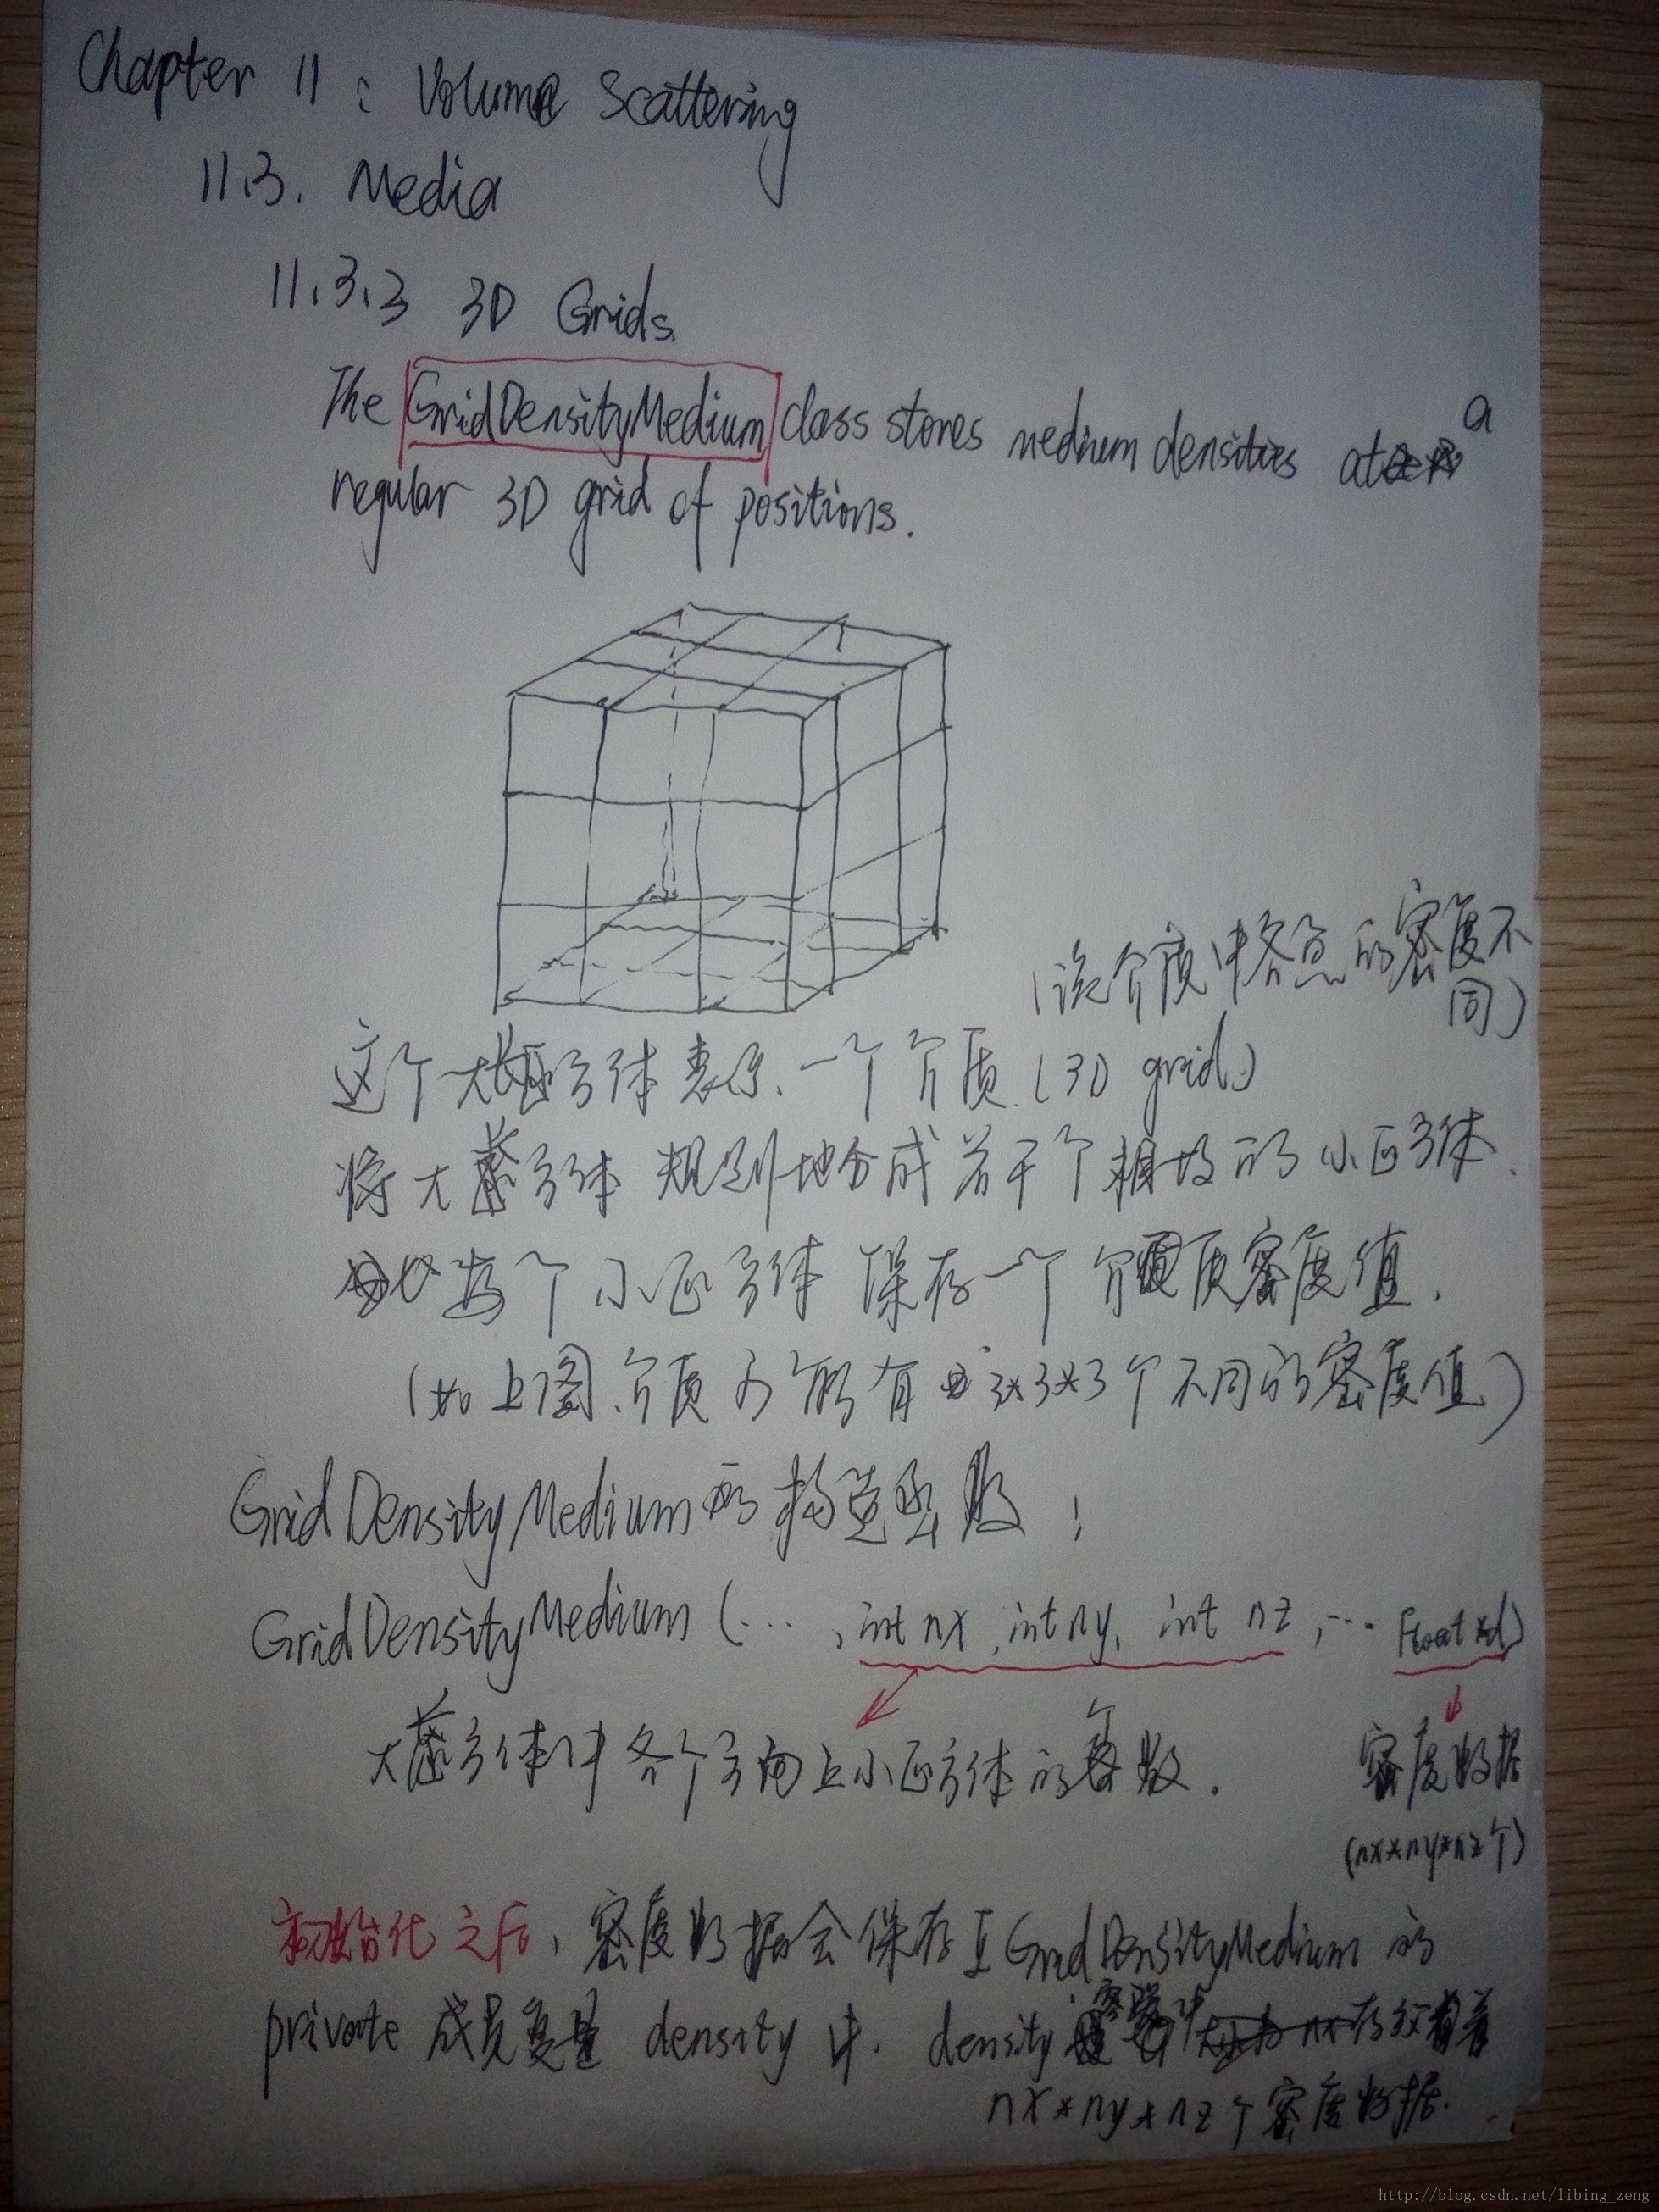 Chapter 11 : Volume Scattering
11.3. Media
11.3.3 3D Grids.
The GridDensityMedium class stores medium densities at a
regular 3D grid of positions.
(该介质中各点的密度不
同)
这个大长方体表示一个介质 (3D grid)
将大长方体规则地分成若干个相等的小正方体.
每个小正方体保存一个介质密度值.
(如上图,介质可能有3*3*3个不同的密度值)
GridDensityMedium的构造函数:
GridDensityMedium (... , int nx, int ny, int nz, ... Float *d)
大长方体中各个方向上小正方体的个数.
密度数据
(nx*ny*nz个)
初始化之后,密度数据会保存在GridDensityMedium的
private 成员变量 density 中. density 存放着
nx*ny*nz个密度数据.
http://blog.csdn.net/libing_zeng